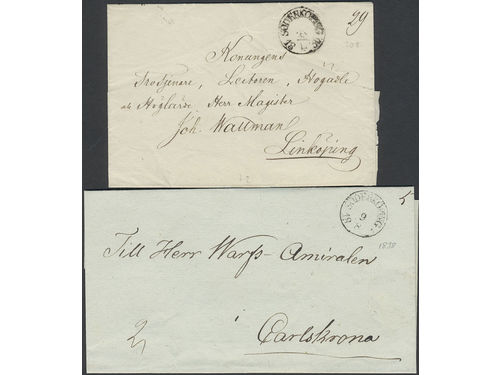 SÖDERKÖPING
29
Konungens
Trotjenare, Lectoren, Högädle
och Höglärde Herr Magister
Joh. Wallman
Linköping
SÖDERKÖPING
9
8
5
1838
Till Herr Warfs-Amiralen
i
Carlskrona
2